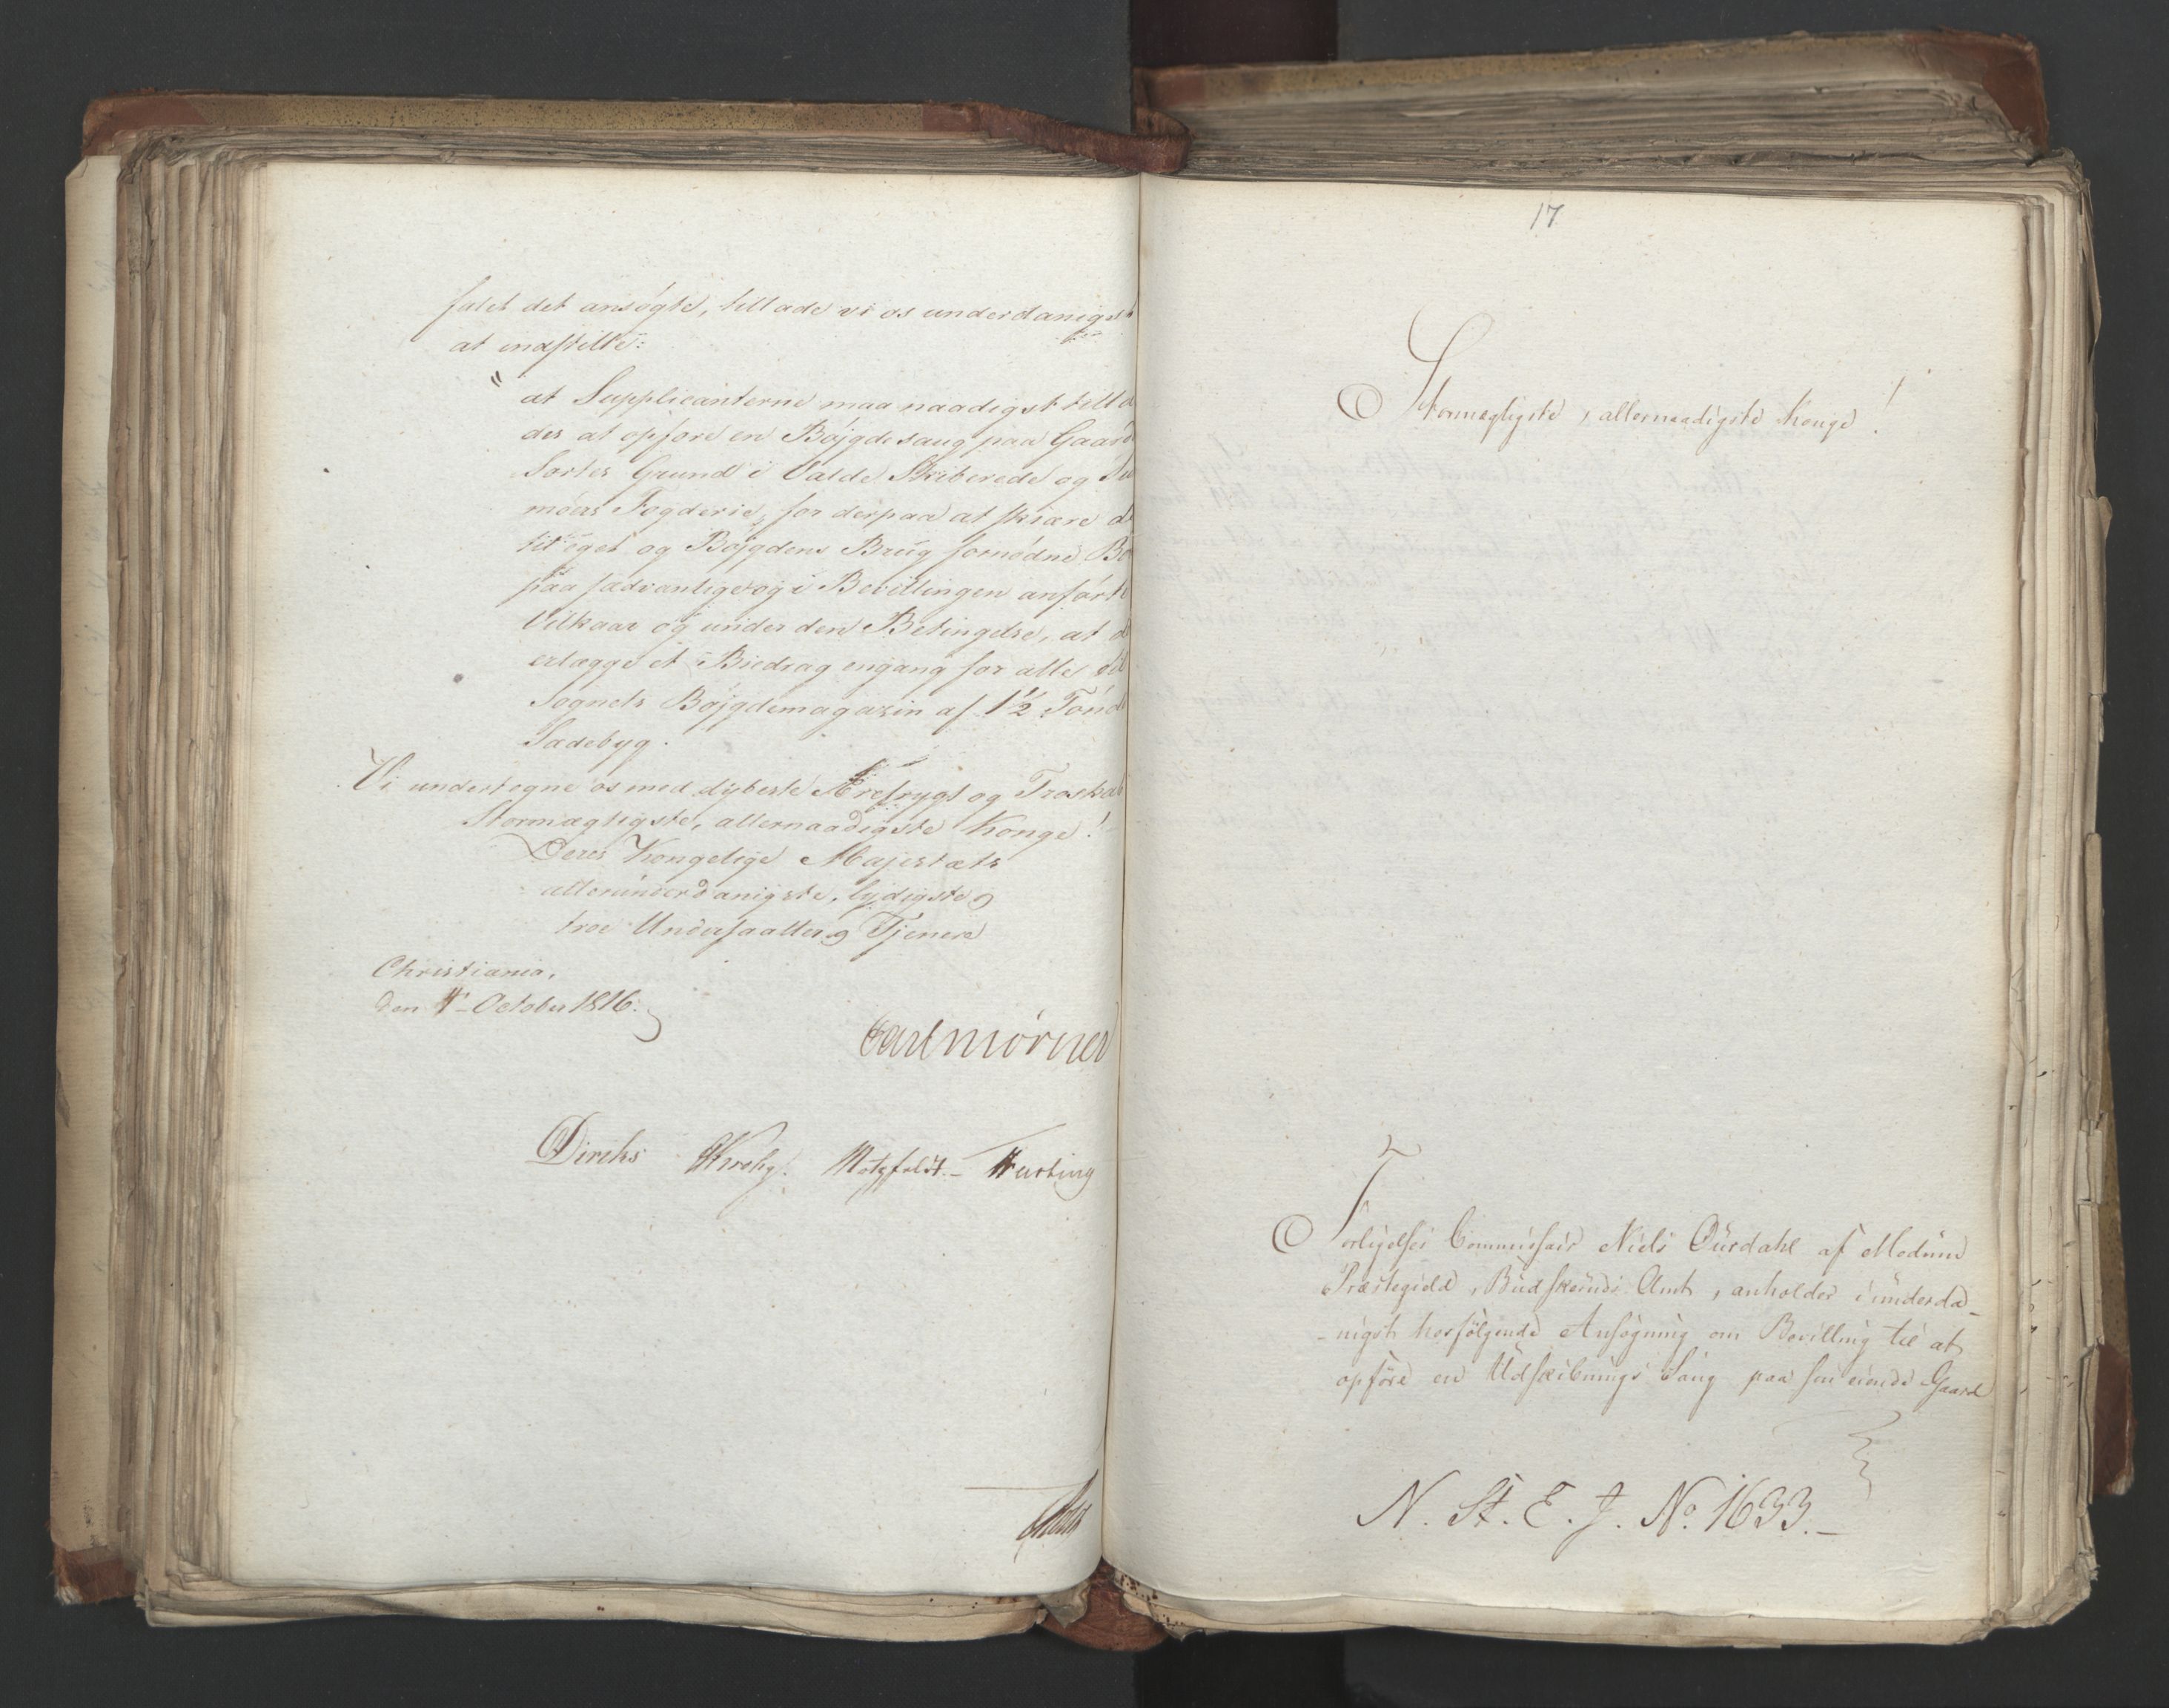 falet det ansøgte, tillade vi os underdanigst
at indstille:
" at Supplicanterne maa naadigst tilla
des at opføre en Bøjgdesaug paa Gaard
Grund i Valde Skiberede og
Fogderie, for derpaa at skiære d
til eget og Bøjgdens Brug fornødne Bo
paa sædvanlige og i Bevillingen anførte
Vilkaar og under den Betingelse, at d
erlægge et Biedrag engang for alle til
Sognets Bøjgdemagazin af 1½ Tønd
Sædebyg.
Vi undertegne os med dybeste Ærefrygt og Troskab
Stormægtigste, allernaadigste Konge!
Deres Kongelige Majestæts
allerunderdanigste, lydigste og
troe Undersaatter og Tjenere
Christiania,
den October 1816.
Carl Mörner
Diriks Krohg. Motzfeldt.- Hurting
17
Stormægtigste, allernaadigste Konge!
Forligelses Commissair Niels Duedahl af Modum
Præstegield, Budskeruds Amt, anholder i underda-
-nigst hosfølgende Ansøgning om Bevilling til at
opføre en Udskibnings Saug paa sin eiende Gaard
N. St. E. J. No. 1633.-